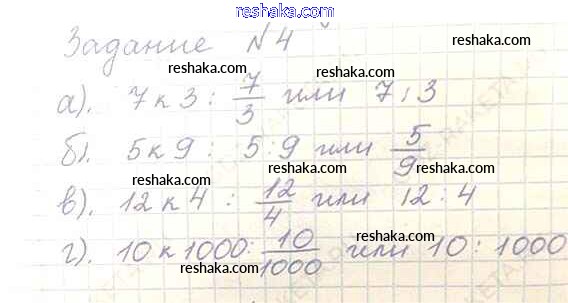 www.reshaka.com
Задание №4
reshaka.com reshaka.com
а). 7 к 3 : 7/3 или 7 : 3
reshaka.com
б). 5 к 9 : 5 : 9 или 5/9
reshaka.com reshaka.com
в). 12 к 4 : 12/4 или 12 : 4
reshaka.com
г). 10 к 1000 : 10/1000 или 10 : 1000
reshaka.com